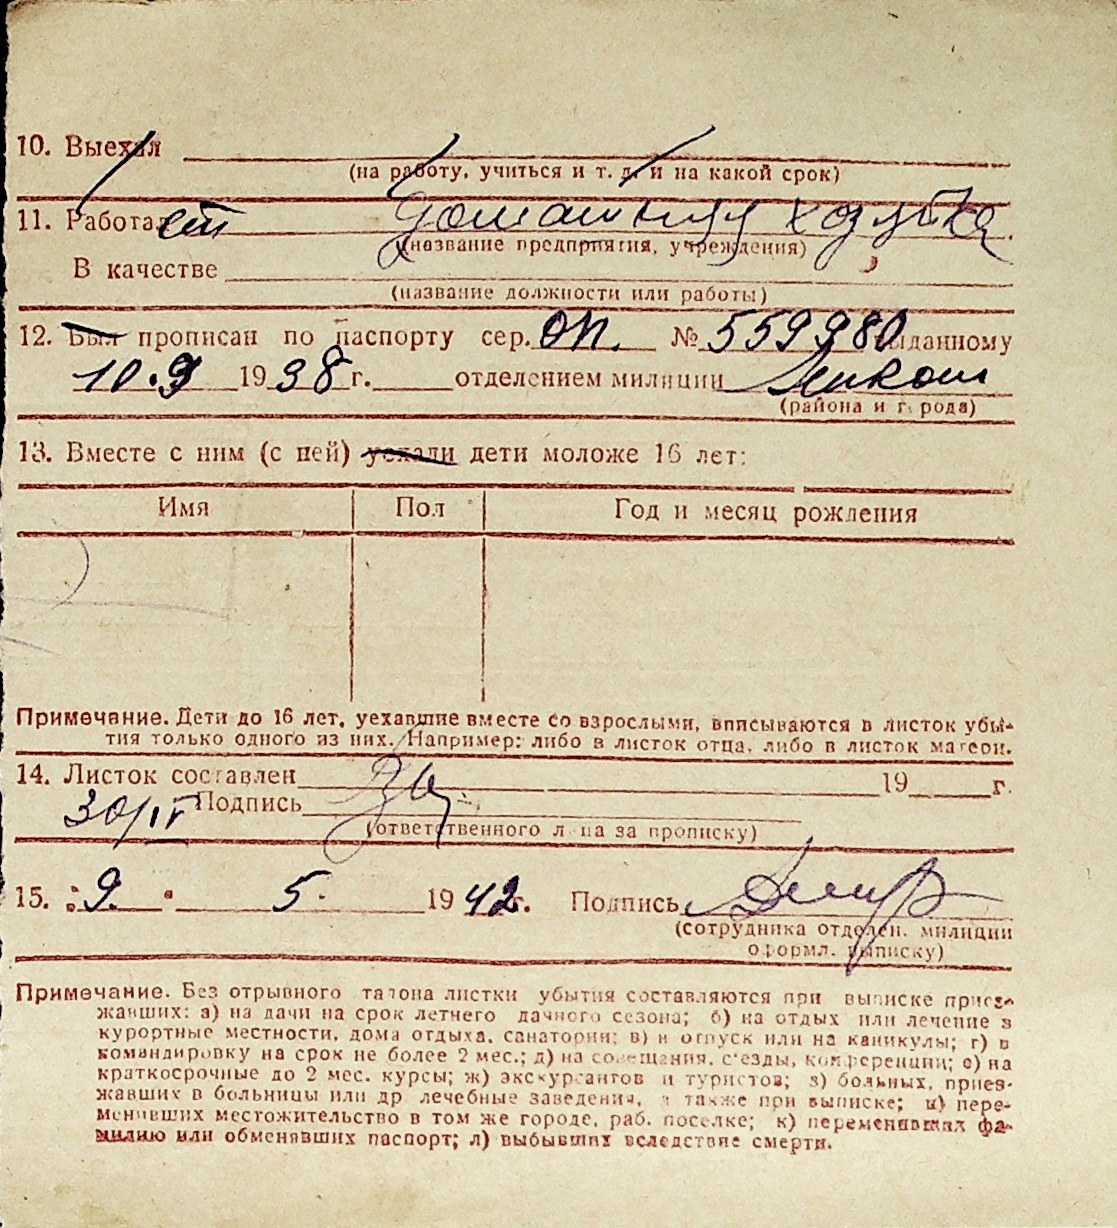 10. Выехал
(на работу, учиться и т. д. и на какой срок)
11. Работает домашняя хозяйка
(название предприятия, учреждения)
В качестве
(название должности или работы)
12. Был прописан по паспорту сер. ОП. № 559980 выданному
10.9 1938 г. отделением милиции
(района и города)
13. Вместе с ним (с ней) уехали дети моложе 16 лет:
Имя Пол Год и месяц рождения
Примечание. Дети до 16 лет, уехавшие вместе со взрослыми, вписываются в листок убы-
тия только одного из них. Например: либо в листок отца, либо в листок матери.
14. Листок составлен 19 г.
30/IV Подпись
(ответственного лица за прописку)
15. „9. “ 5. 1942 г. Подпись
(сотрудника отделен. милиции
оформл. выписку)
Примечание. Без отрывного талона листки убытия составляются при выписке приез-
жавших: а) на дачи на срок летнего дачного сезона; б) на отдых или лечение в
курортные местности, дома отдыха, санатории; в) в отпуск или на каникулы; г) в
командировку на срок не более 2 мес.; д) на совещания, с'езды, конференции; е) на
краткосрочные до 2 мес. курсы; ж) экскурсантов и туристов; з) больных, приез-
жавших в больницы или др лечебные заведения, а также при выписке; и) пере-
менивших местожительство в том же городе, раб. поселке; к) переменивших фа-
милию или обменявших паспорт; л) выбывших вследствие смерти.